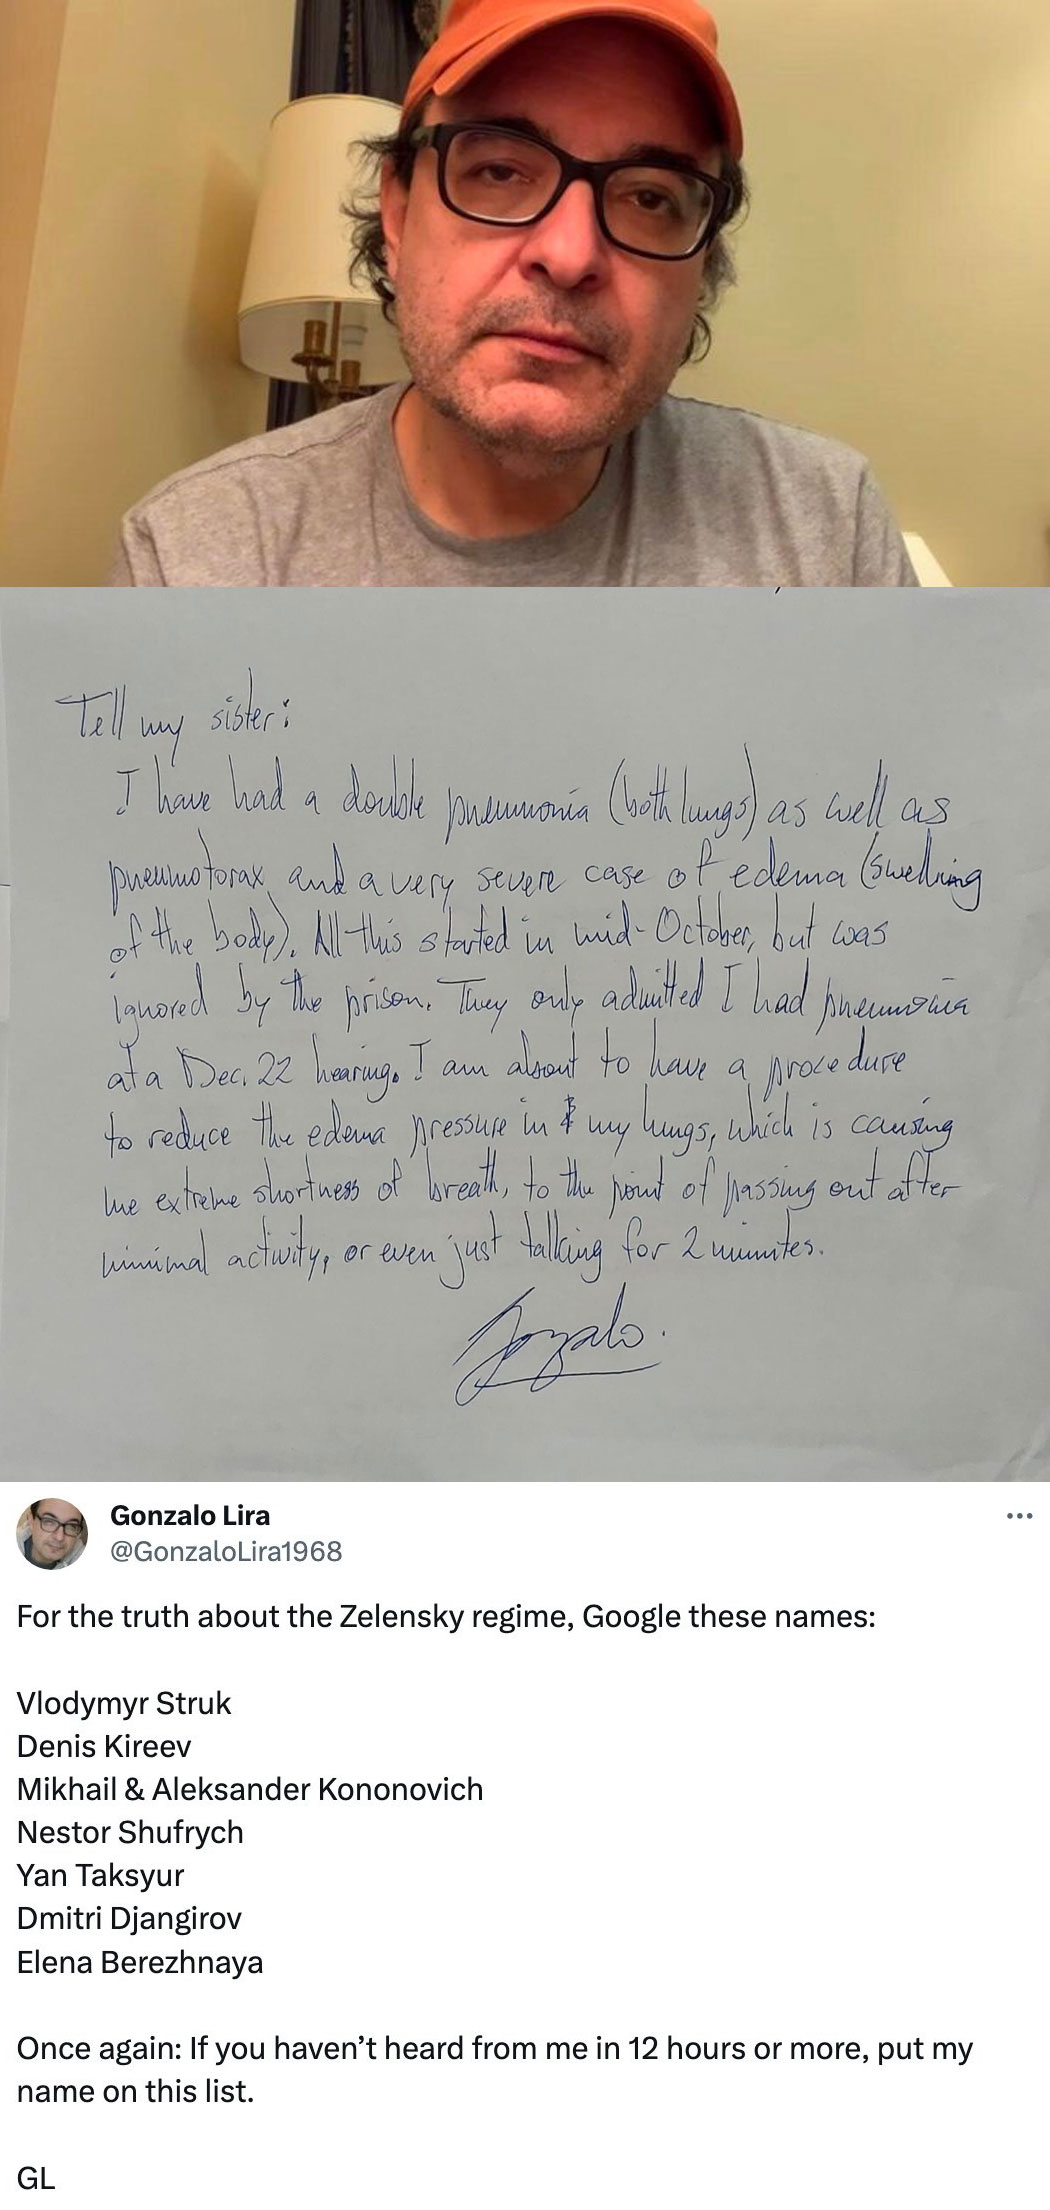 Tell my sister:
I have had a double pneumonia (both lungs) as well as
pneumotorax and a very severe case of edema (swelling
of the body). All this started in mid-October, but was
ignored by the prison. They only admitted I had pneumonia
at a Dec. 22 hearing. I am about to have a procedure
to reduce the edema pressure in my lungs, which is causing
me extreme shortness of breath, to the point of passing out after
minimal activity, or even just talking for 2 minutes.
Gonzalo.
Gonzalo Lira
@GonzaloLira1968
For the truth about the Zelensky regime, Google these names:
Vlodymyr Struk
Denis Kireev
Mikhail & Aleksander Kononovich
Nestor Shufrych
Yan Taksyur
Dmitri Djangirov
Elena Berezhnaya
Once again: If you haven’t heard from me in 12 hours or more, put my
name on this list.
GL